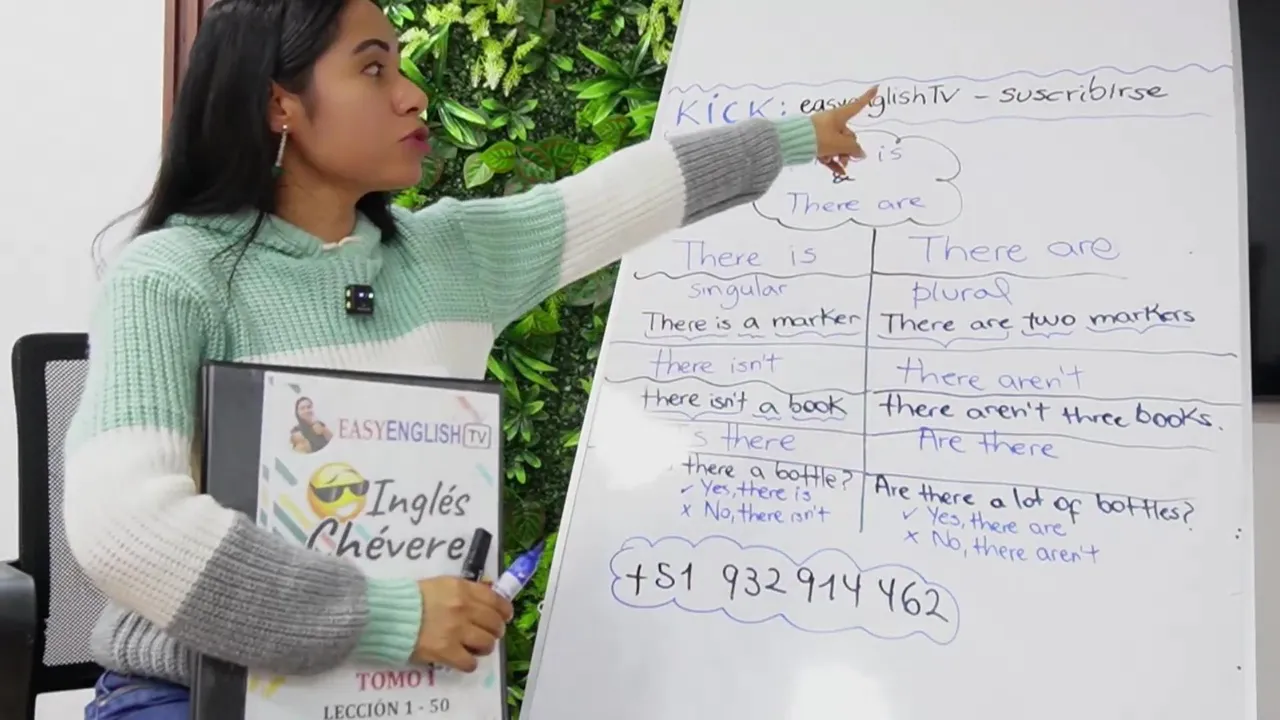 KICK: easyenglishTV - suscribirse
is
&
There are
There is
There are
singular
plural
There is a marker
There are two markers
there isn't
there aren't
there isn't a book
there aren't three books.
there
Are there
there a bottle?
Are there a lot of bottles?
✓ Yes, there is
✓ Yes, there are
x No, there isn't
x No, there aren't
+51 932 914 462
EASYENGLISH TV
Inglés
Chévere
TOMO I
LECCIÓN 1 - 50